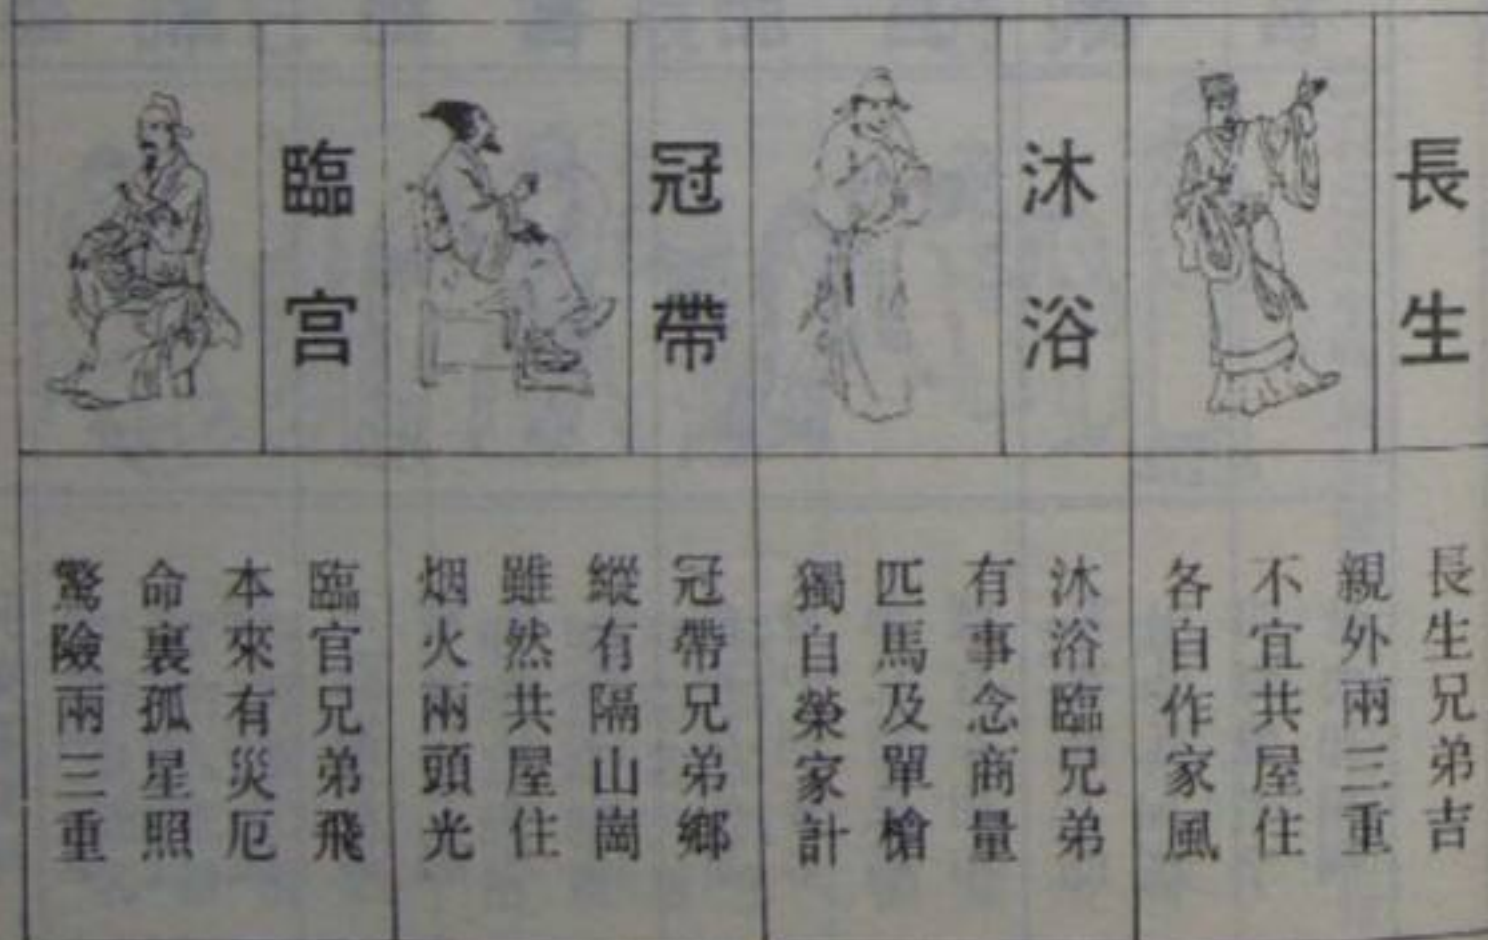 長生
長生兄弟吉
親外兩三重
不宜共屋住
各自作家風
沐浴
沐浴臨兄弟
有事念商量
匹馬及單槍
獨自榮家計
冠帶
冠帶兄弟鄉
縱有隔山崗
雖然共屋住
烟火兩頭光
臨宫
臨官兄弟飛
本來有災厄
命裏孤星照
驚險兩三重